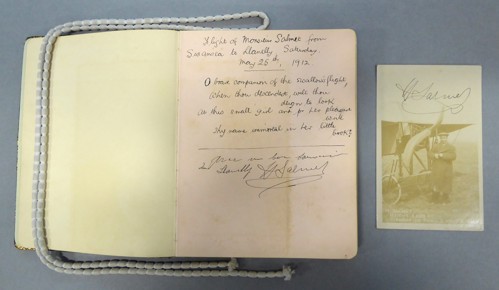 Flight of Monsieur Salmet from
Swansea to Llanelly Saturday.
May 25th, 1912
O brave companion of the swallows flight,
When thou descendest, wilt thou
deign to look
At this small girl and for her pleasure
Thy name immortal in her little
book?
Avec un bon Souvenir
Llanelly H Salmet
H Salmet